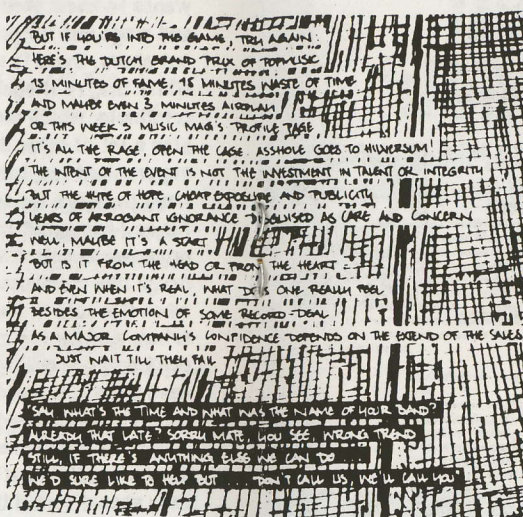 BUT IF YOU'RE INTO THE GAME, TRY AGAIN:
HERE'S THE DUTCH GRAND PRIX OF POPMUSIC
15 MINUTES OF FAME, 15 MINUTES WASTE OF TIME
AND MAYBE EVEN 3 MINUTES AIRPLAY
OR THIS WEEK'S MUSIC MAG'S PROFILE PAGE
IT'S ALL THE RAGE, OPEN THE CAGE. ASSHOLE GOES TO HILVERSUM!
THE INTENT OF THE EVENT IS NOT THE INVESTMENT IN TALENT OR INTEGRITY
BUT THE HYPE OF HOPE, CHEAP EXPOSURE AND PUBLICITY
YEARS OF ARROGANT IGNORANCE DISGUISED AS CARE AND CONCERN
WELL, MAYBE IT'S A START
BUT IS IT FROM THE HEAD OR FROM THE HEART -
AND EVEN WHEN IT'S REAL, WHAT DOES ONE REALLY FEEL
BESIDES THE EMOTION OF SOME RECORD-DEAL
AS A MAJOR COMPANY'S CONFIDENCE DEPENDS ON THE EXTEND OF THE SALES
JUST WAIT TILL THEY FAIL
"SAY, WHAT'S THE TIME AND WHAT WAS THE NAME OF YOUR BAND?
ALREADY THAT LATE? SORRY MATE, YOU SEE, WRONG TREND
STILL, IF THERE'S ANYTHING ELSE WE CAN DO
WE'D SURE LIKE TO HELP BUT ... DON'T CALL US, WE'LL CALL YOU"